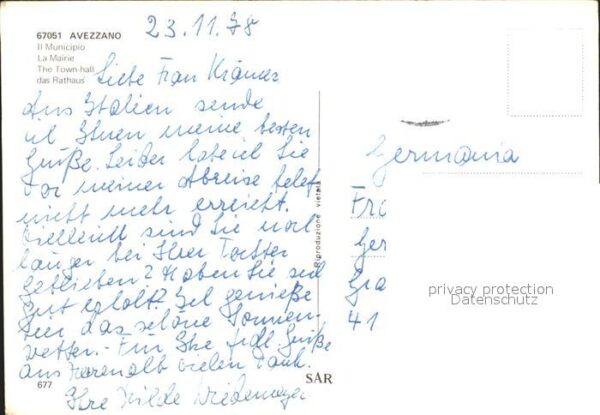 67051 AVEZZANO
23.11.78
Il Municipio
La Mairie
The Town-hall
das Rathaus
Liebe Frau Krämer
Aus Italien sende
ich Ihnen meine besten
Grüße. Leider habe ich Sie
vor meiner Abreise telef
nicht mehr erreicht.
Vielleicht sind Sie noch
länger bei Ihrer Tochter
geblieben? Haben Sie sich
gut erholt? Ich genieße
hier das schöne Sonnen-
wetter. - Für Ihre frdl. Grüße
aus Herrenalb vielen Dank.
Ihre Hilde Wiedemayer
677
SAR
Riproduzione vietata
Germania
Fr
Ger
Gra
41
privacy protection
Datenschutz